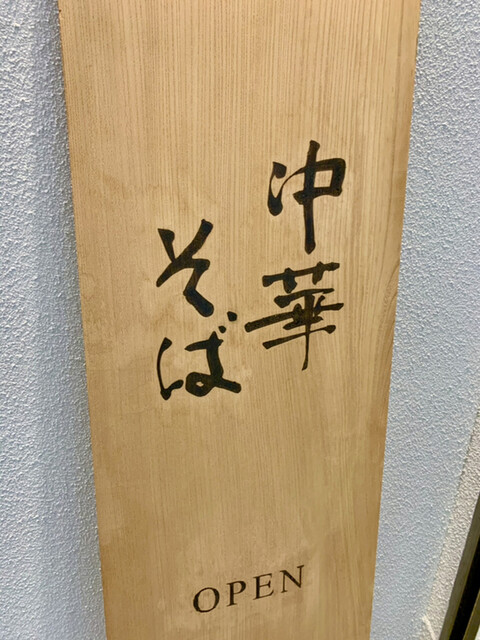 中華
そば
OPEN